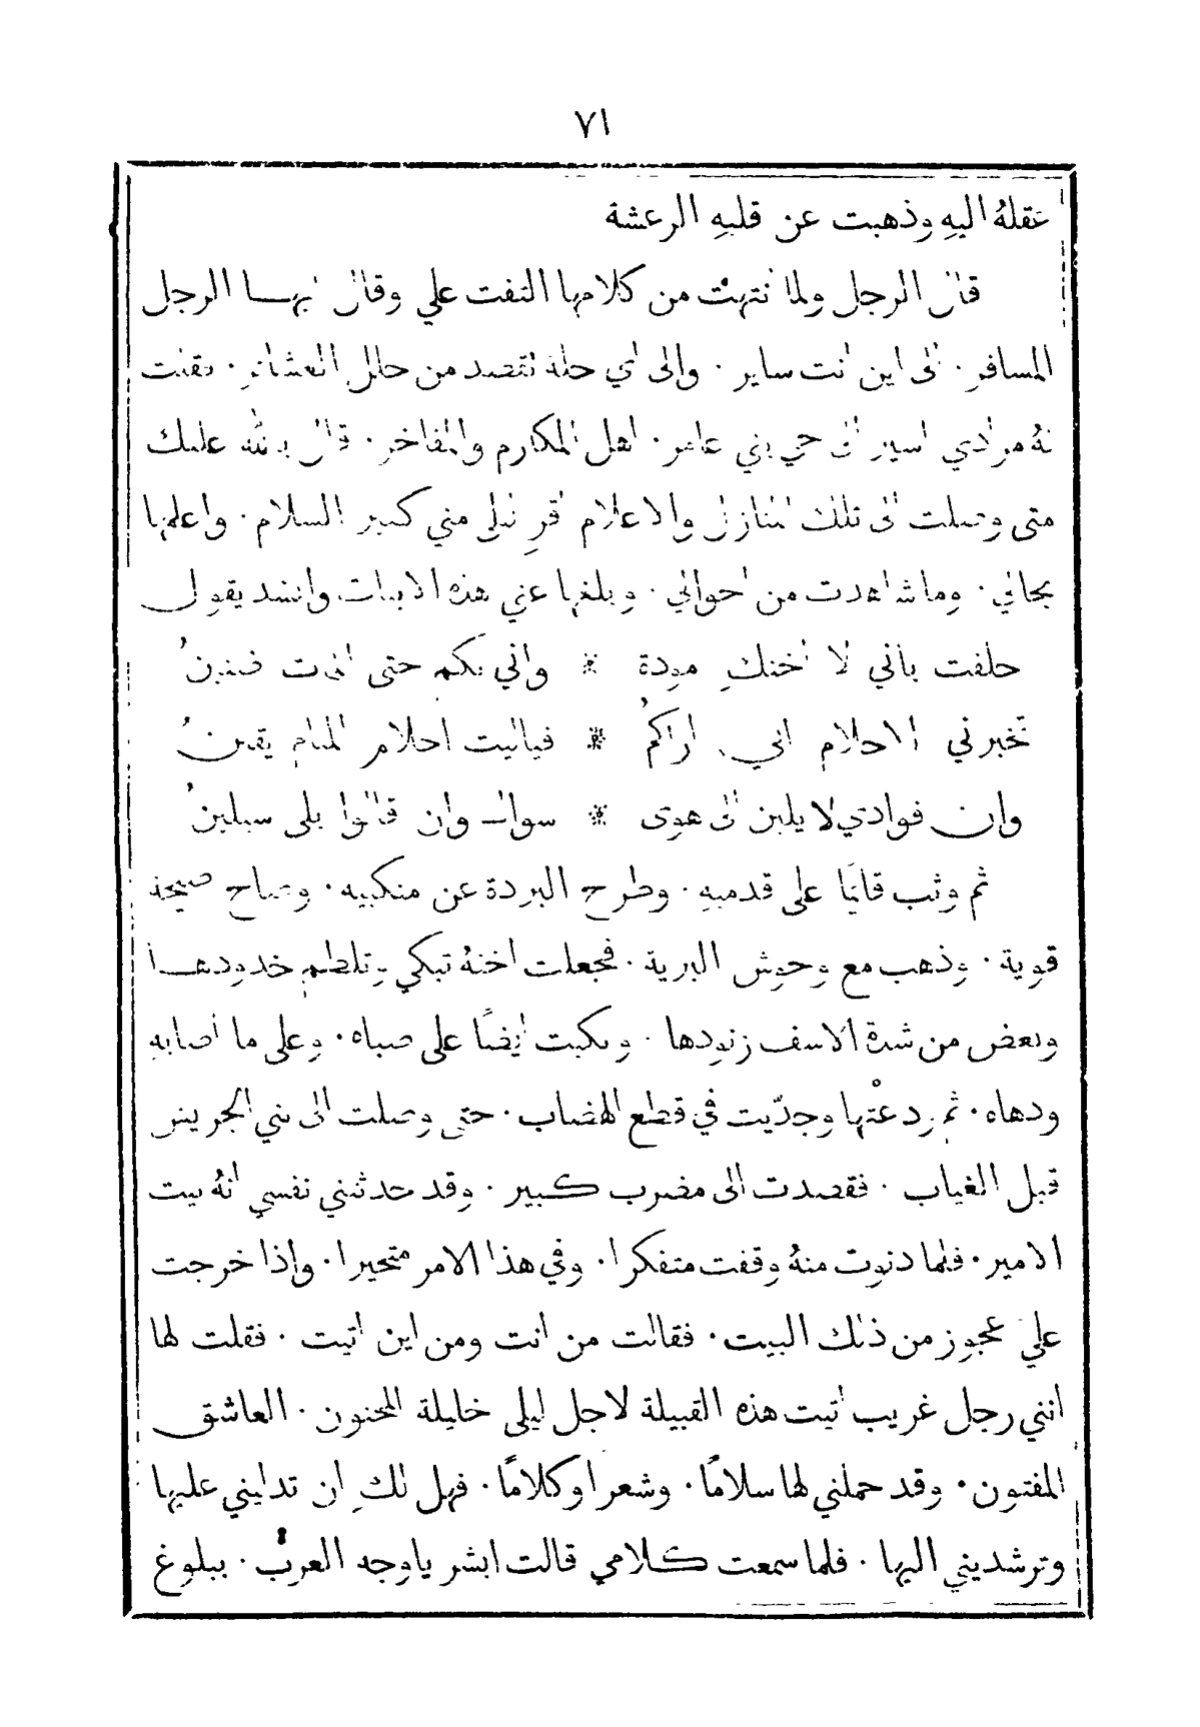 ٧١
عقلهُ اليهِ وذهبت عن قلبهِ الرعشة
قال الرجل ولما انتهت من كلامها التفت علي وقال ايهـا الرجل
المسافر · الى اين انت ساير · والى اي حلة تقصد من حلل العشائر · فقلت
لهُ مرادي اسير الى حي بني عامر · اهل المكارم والمفاخر · قال بالله عليك
متى وصلت الى تلك المنازل والاعلام اقرِ ليلى مني كثير السلام · واعلمها
بحالي · وما شاهدت من احوالي · وبلغها عني هذه الابيات وانشد يقول
حلفت باني لا اخنكِ مودة * واني بكم حتى الممات ضنينُ
تخبرني الاحلام اني اراكمُ * فياليت احلام المنام يقينُ
وان فوادي لا يلين الى هوى * سواك وان قالوا بلى سيلينُ
ثم وثب قائمًا على قدميهِ · وطرح البردة عن منكبيه · وصاح صيحة
قوية · وذهب مع وحوش البرية · فجعلت اختهُ تبكي وتلطم خدودهـا
وتعض من شدة الاسف زنودها · وبكيت ايضًا على صباه · وعلى ما اصابهِ
ودهاه · ثم ودعتها وجدّيت في قطع الهضاب · حتى وصلت الى بني الحريش
قبل الغياب · فقصدت الى مضرب كبير · وقد حدثتني نفسي انهُ بيت
الامير · فلما دنوت منهُ وقفت متفكرا · وفي هذا الامر متحيرا · واذا خرجت
علي عجوز من ذلك البيت · فقالت من انت ومن اين اتيت · فقلت لها
انني رجل غريب اتيت هذه القبيلة لاجل ليلى خليلة المجنون · العاشق
المفتون · وقد حملني لها سلامًا · وشعرا وكلامًا · فهل لكِ ان تدليني عليها
وترشديني اليها · فلما سمعت كلامي قالت ابشر ياوجه العرب · ببلوغ